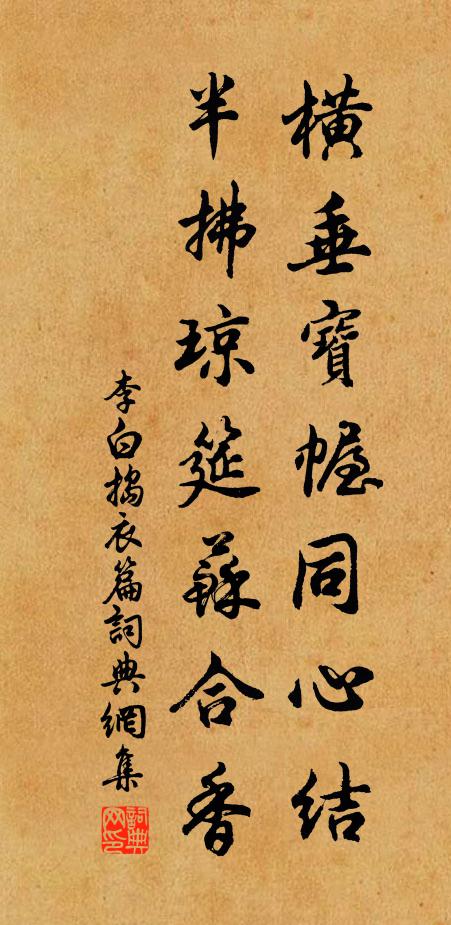 橫垂寶幄同心結
半拂琼筵蘇合香
李白搗衣篇詞典網集
詞典网印